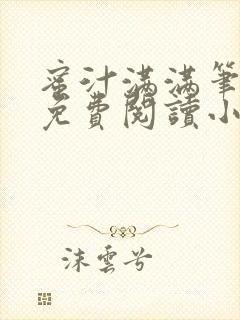 蜜汁满满筆
免費閱讀小
沫雲兮